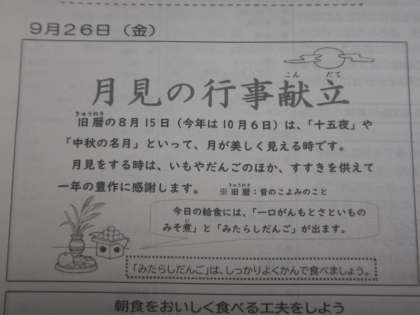 9月26日（金）
こん だて
月見の行事献立
きゅうれき
旧暦の8月15日（今年は10月6日）は、「十五夜」や
『中秋の名月』といって、月が美しく見える時です。
月見をする時は、いもやだんごのほか、すすきを供えて
一年の豊作に感謝します。 ※旧暦：昔のこよみのこと
きゅうれき
今日の給食には、「一口がんもとさといもの
みそ煮」と「みたらしだんご」が出ます。
に
「みたらしだんご」は、しっかりよくかんで食べましょう。
朝食をおいしく食べる工夫をしよう